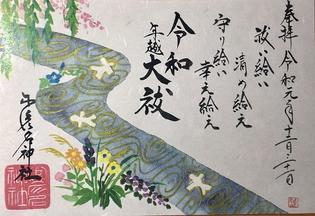 奉拝 令和元年十二月三十一日
祓え給い
清め給え
守り給い
幸え給え
令和
年越
大祓
神社